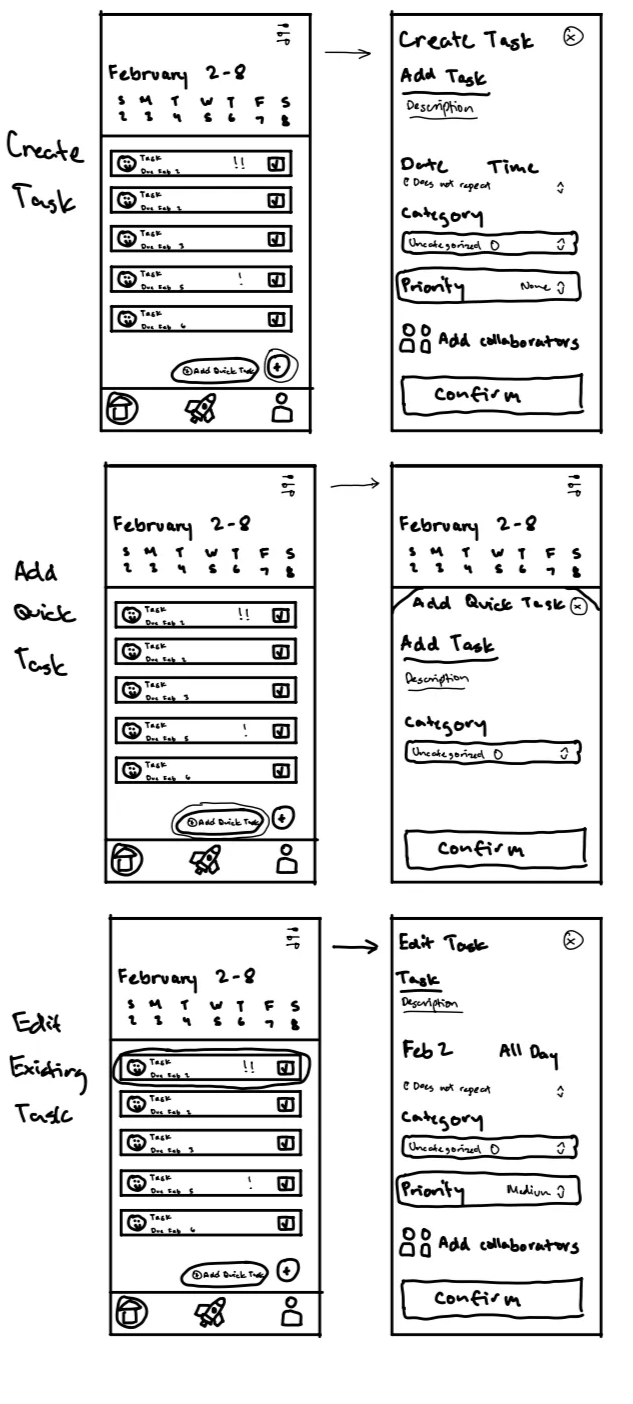 Create
Task
February 2-8
S M T W T F S
2 3 4 5 6 7 8
Task
Due Feb 2
!!
Task
Due Feb 2
Task
Due Feb 3
Task
Due Feb 5
!
Task
Due Feb 6
Add Quick Task
+
Create Task
x
Add Task
Description
Date Time
Does not repeat
Category
Uncategorized
Priority None
Add collaborators
Confirm
Add
Quick
Task
February 2-8
S M T W T F S
2 3 4 5 6 7 8
Task
Due Feb 2
!!
Task
Due Feb 2
Task
Due Feb 3
Task
Due Feb 5
!
Task
Due Feb 6
Add Quick Task
+
February 2-8
S M T W T F S
2 3 4 5 6 7 8
Add Quick Task x
Add Task
Description
Category
Uncategorized
Confirm
Edit
Existing
Task
February 2-8
S M T W T F S
2 3 4 5 6 7 8
Task
Due Feb 2
!!
Task
Due Feb 2
Task
Due Feb 3
Task
Due Feb 5
!
Task
Due Feb 6
Add Quick Task
+
Edit Task
x
Task
Description
Feb 2 All Day
Does not repeat
Category
Uncategorized
Priority Medium
Add collaborators
Confirm